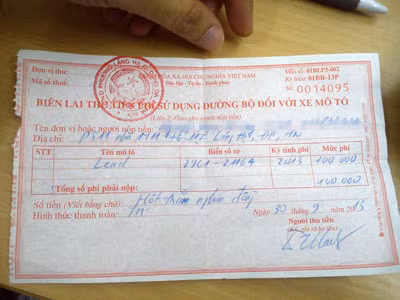 Đơn vị thu:
Mã số thuế:
CỘNG HÒA XÃ HỘI CHỦ NGHĨA VIỆT NAM
Độc lập - Tự do - Hạnh phúc
Mẫu số: 01BLP3-002
Ký hiệu: 01BR-13P
Số: 0014095
BIÊN LAI THU TIỀN PHÍ SỬ DỤNG ĐƯỜNG BỘ ĐỐI VỚI XE MÔ TÔ
(Liên 2: Giao cho người nộp tiền)
Tên đơn vị hoặc người nộp tiền:
Địa chỉ: HN
STT Tên mô tô Biển số xe Kỳ tính phí Mức phí
Lead 2013 100 000
Tổng số phí phải nộp: 100.000
Số tiền (Viết bằng chữ): Một trăm nghìn đồng
Hình thức thanh toán: TM Ngày 30 tháng 9 năm 2013
Người thu tiền
(Ký, ghi rõ họ tên)